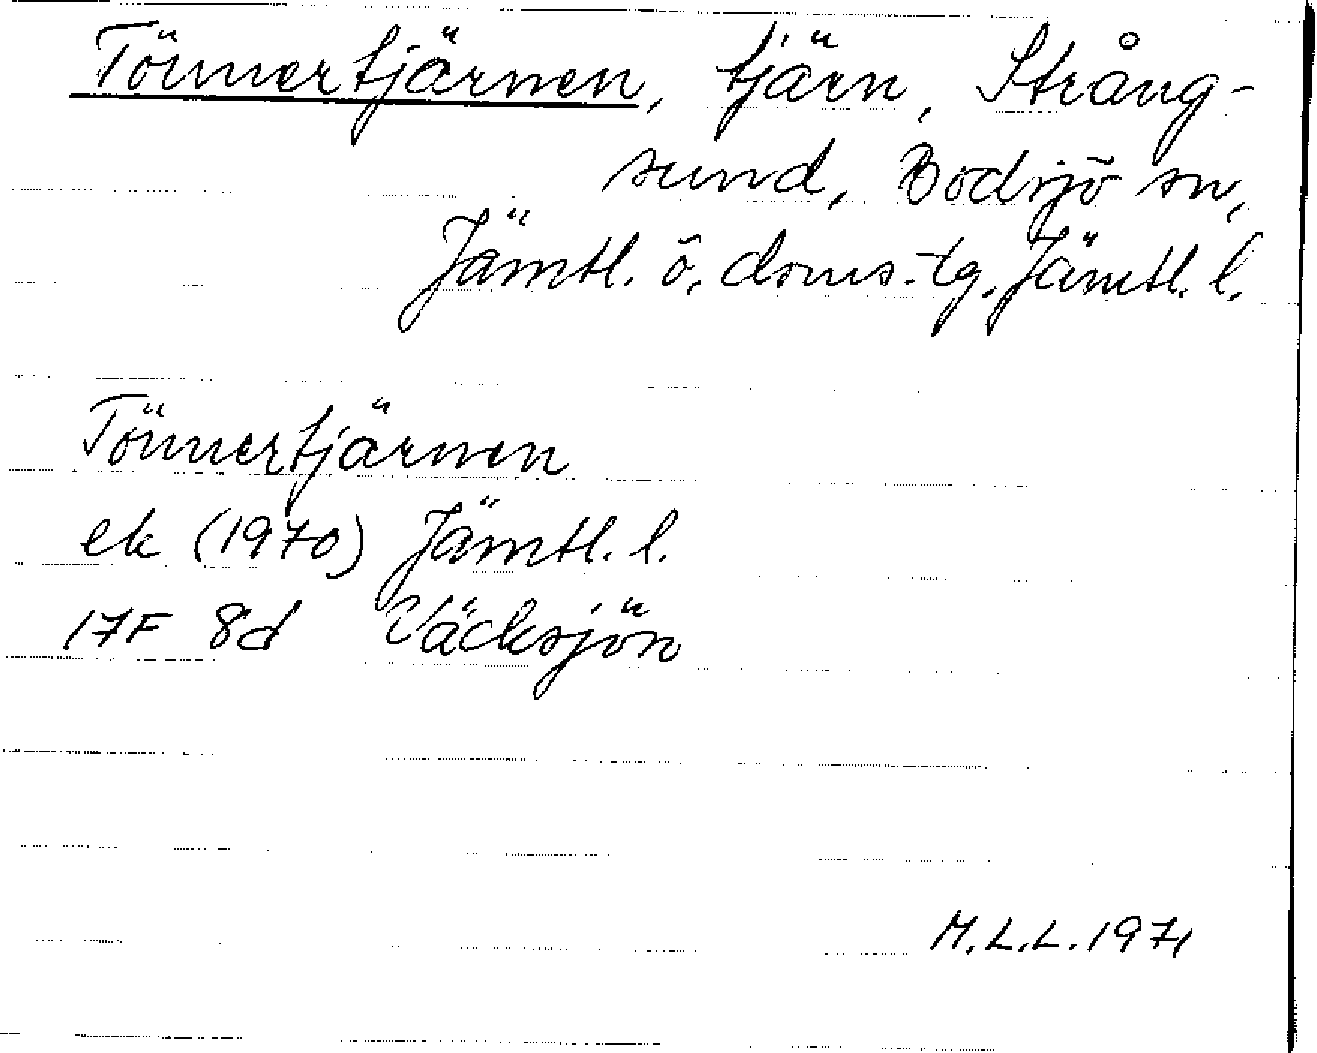 Tönnertjärnen, tjärn, Strång-
sund, Bodsjö sn,
Jämtl. ö. doms.-tg. Jämtl. l.
Tönnertjärnen
ek (1970) Jämtl. l.
17F 8d Väcksjön
M.L.L. 1971